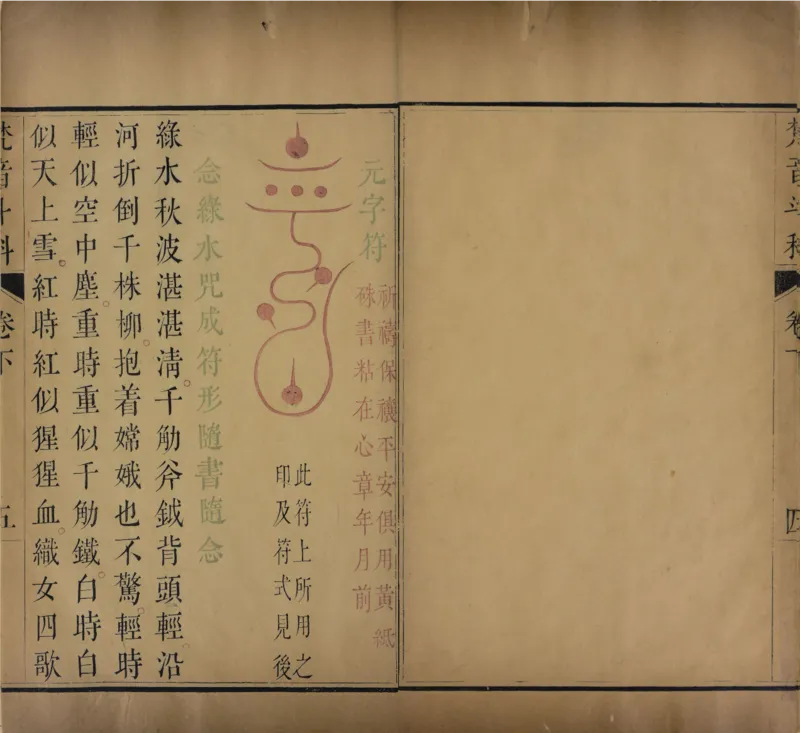 梵音斗科 卷下 四
元字符
祈禱保禳平安俱用黃紙
硃書粘在心章年月前
此符上所用之
印及符式見後
念綠水咒成符形隨書隨念
綠水秋波湛湛清。千觔斧鉞背頭輕沿
河折倒千株柳。抱着嫦娥也不驚。輕時
輕似空中塵。重時重似千觔鐵。白時白
似天上雪。紅時紅似猩猩血。織女四歌
梵音斗科 卷下 五